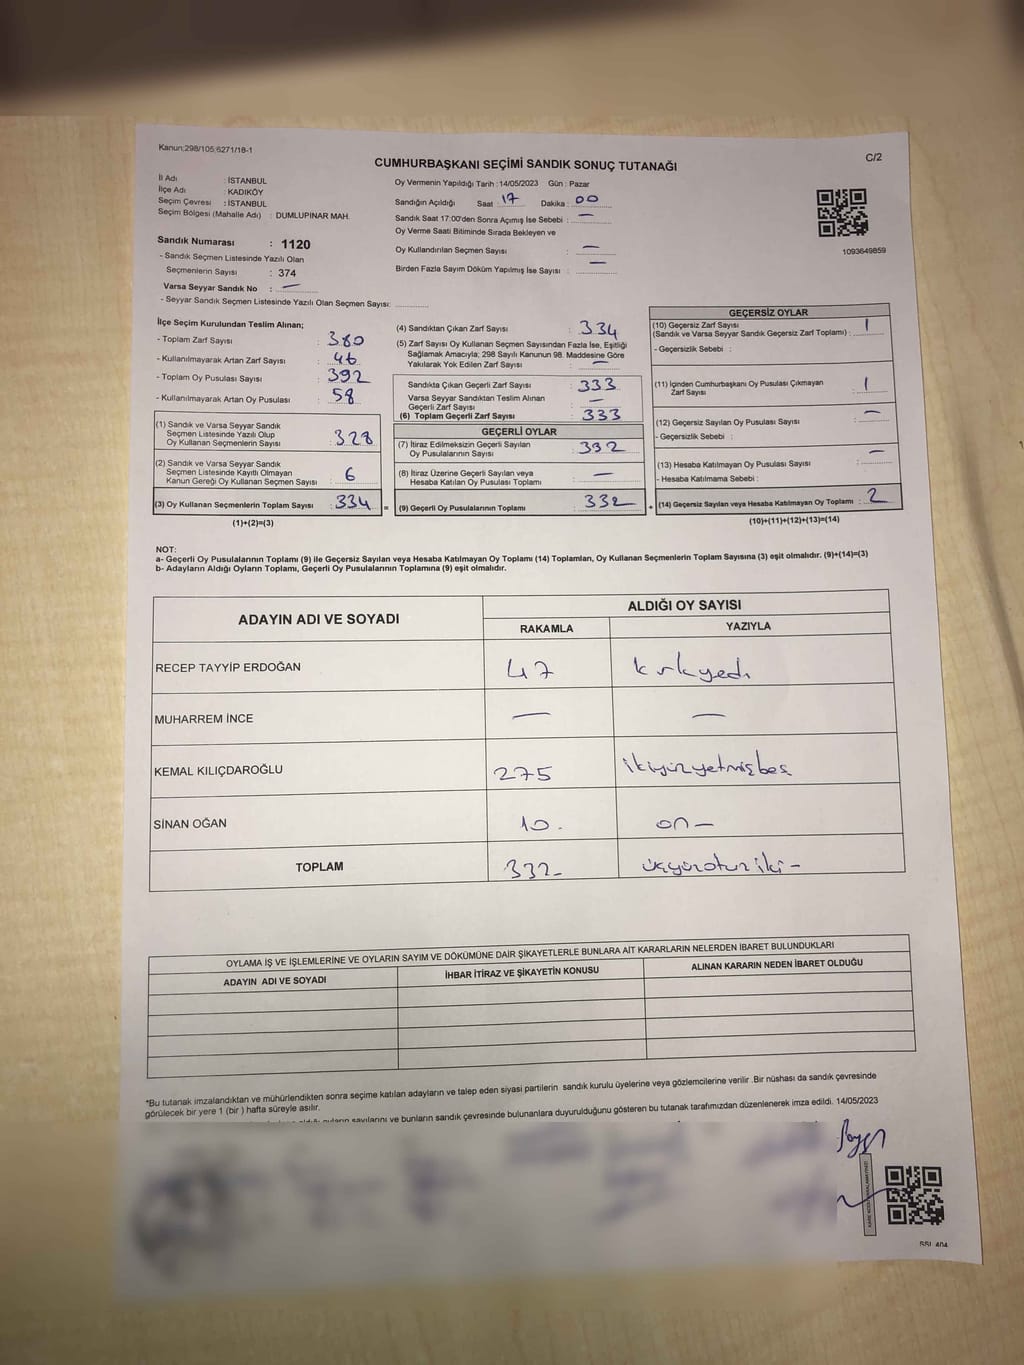 Kanun:298/105;6271/18-1
CUMHURBAŞKANI SEÇİMİ SANDIK SONUÇ TUTANAĞI
C/2
İl Adı : İSTANBUL
İlçe Adı : KADIKÖY
Seçim Çevresi : İSTANBUL
Seçim Bölgesi (Mahalle Adı) : DUMLUPINAR MAH.
Sandık Numarası : 1120
- Sandık Seçmen Listesinde Yazılı Olan
Seçmenlerin Sayısı : 374
Varsa Seyyar Sandık No : —
- Seyyar Sandık Seçmen Listesinde Yazılı Olan Seçmen Sayısı:
Oy Vermenin Yapıldığı Tarih : 14/05/2023 Gün : Pazar
Sandığın Açıldığı Saat 17 Dakika : 00
Sandık Saat 17:00'den Sonra Açımış İse Sebebi : —
Oy Verme Saati Bitiminde Sırada Bekleyen ve
Oy Kullandırılan Seçmen Sayısı : —
Birden Fazla Sayım Döküm Yapılmış İse Sayısı : —
1093649859
İlçe Seçim Kurulundan Teslim Alınan;
- Toplam Zarf Sayısı : 380
- Kullanılmayarak Artan Zarf Sayısı : 46
- Toplam Oy Pusulası Sayısı : 392
- Kullanılmayarak Artan Oy Pusulası : 58
(1) Sandık ve Varsa Seyyar Sandık
Seçmen Listesinde Yazılı Olup
Oy Kullanan Seçmenlerin Sayısı : 328
(2) Sandık ve Varsa Seyyar Sandık
Seçmen Listesinde Kayıtlı Olmayan
Kanun Gereği Oy Kullanan Seçmen Sayısı : 6
(3) Oy Kullanan Seçmenlerin Toplam Sayısı : 334 =
(1)+(2)=(3)
(4) Sandıktan Çıkan Zarf Sayısı : 334
(5) Zarf Sayısı Oy Kullanan Seçmen Sayısından Fazla İse, Eşitliği
Sağlamak Amacıyla; 298 Sayılı Kanunun 98. Maddesine Göre
Yakılarak Yok Edilen Zarf Sayısı : —
Sandıkta Çıkan Geçerli Zarf Sayısı : 333
Varsa Seyyar Sandıktan Teslim Alınan
Geçerli Zarf Sayısı : —
(6) Toplam Geçerli Zarf Sayısı : 333
GEÇERLİ OYLAR
(7) İtiraz Edilmeksizin Geçerli Sayılan
Oy Pusulalarının Sayısı : 332
(8) İtiraz Üzerine Geçerli Sayılan veya
Hesaba Katılan Oy Pusulası Toplamı : —
(9) Geçerli Oy Pusulalarının Toplamı : 332 +
GEÇERSİZ OYLAR
(10) Geçersiz Zarf Sayısı
(Sandık ve Varsa Seyyar Sandık Geçersiz Zarf Toplamı) : 1
- Geçersizlik Sebebi :
(11) İçinden Cumhurbaşkanı Oy Pusulası Çıkmayan
Zarf Sayısı : 1
(12) Geçersiz Sayılan Oy Pusulası Sayısı : —
- Geçersizlik Sebebi :
(13) Hesaba Katılmayan Oy Pusulası Sayısı : —
- Hesaba Katılmama Sebebi :
(14) Geçersiz Sayılan veya Hesaba Katılmayan Oy Toplamı : 2
(10)+(11)+(12)+(13)=(14)
NOT:
a- Geçerli Oy Pusulalarının Toplamı (9) ile Geçersiz Sayılan veya Hesaba Katılmayan Oy Toplamı (14) Toplamları, Oy Kullanan Seçmenlerin Toplam Sayısına (3) eşit olmalıdır. (9)+(14)=(3)
b- Adayların Aldığı Oyların Toplamı, Geçerli Oy Pusulalarının Toplamına (9) eşit olmalıdır.
ADAYIN ADI VE SOYADI
ALDIĞI OY SAYISI
RAKAMLA YAZIYLA
RECEP TAYYİP ERDOĞAN 47 kırkyedi
MUHARREM İNCE — —
KEMAL KILIÇDAROĞLU 275 ikiyüzyetmişbeş
SİNAN OĞAN 10. on —
TOPLAM 332- üçyüzotuziki -
OYLAMA İŞ VE İŞLEMLERİNE VE OYLARIN SAYIM VE DÖKÜMÜNE DAİR ŞİKAYETLERLE BUNLARA AİT KARARLARIN NELERDEN İBARET BULUNDUKLARI
ADAYIN ADI VE SOYADI İHBAR İTİRAZ VE ŞİKAYETİN KONUSU ALINAN KARARIN NEDEN İBARET OLDUĞU
*Bu tutanak imzalandıktan ve mühürlendikten sonra seçime katılan adayların ve talep eden siyasi partilerin sandık kurulu üyelerine veya gözlemcilerine verilir .Bir nüshası da sandık çevresinde
görülecek bir yere 1 (bir ) hafta süreyle asılır.
sayılarını ve bunların sandık çevresinde bulunanlara duyurulduğunu gösteren bu tutanak tarafımızdan düzenlenerek imza edildi. 14/05/2023